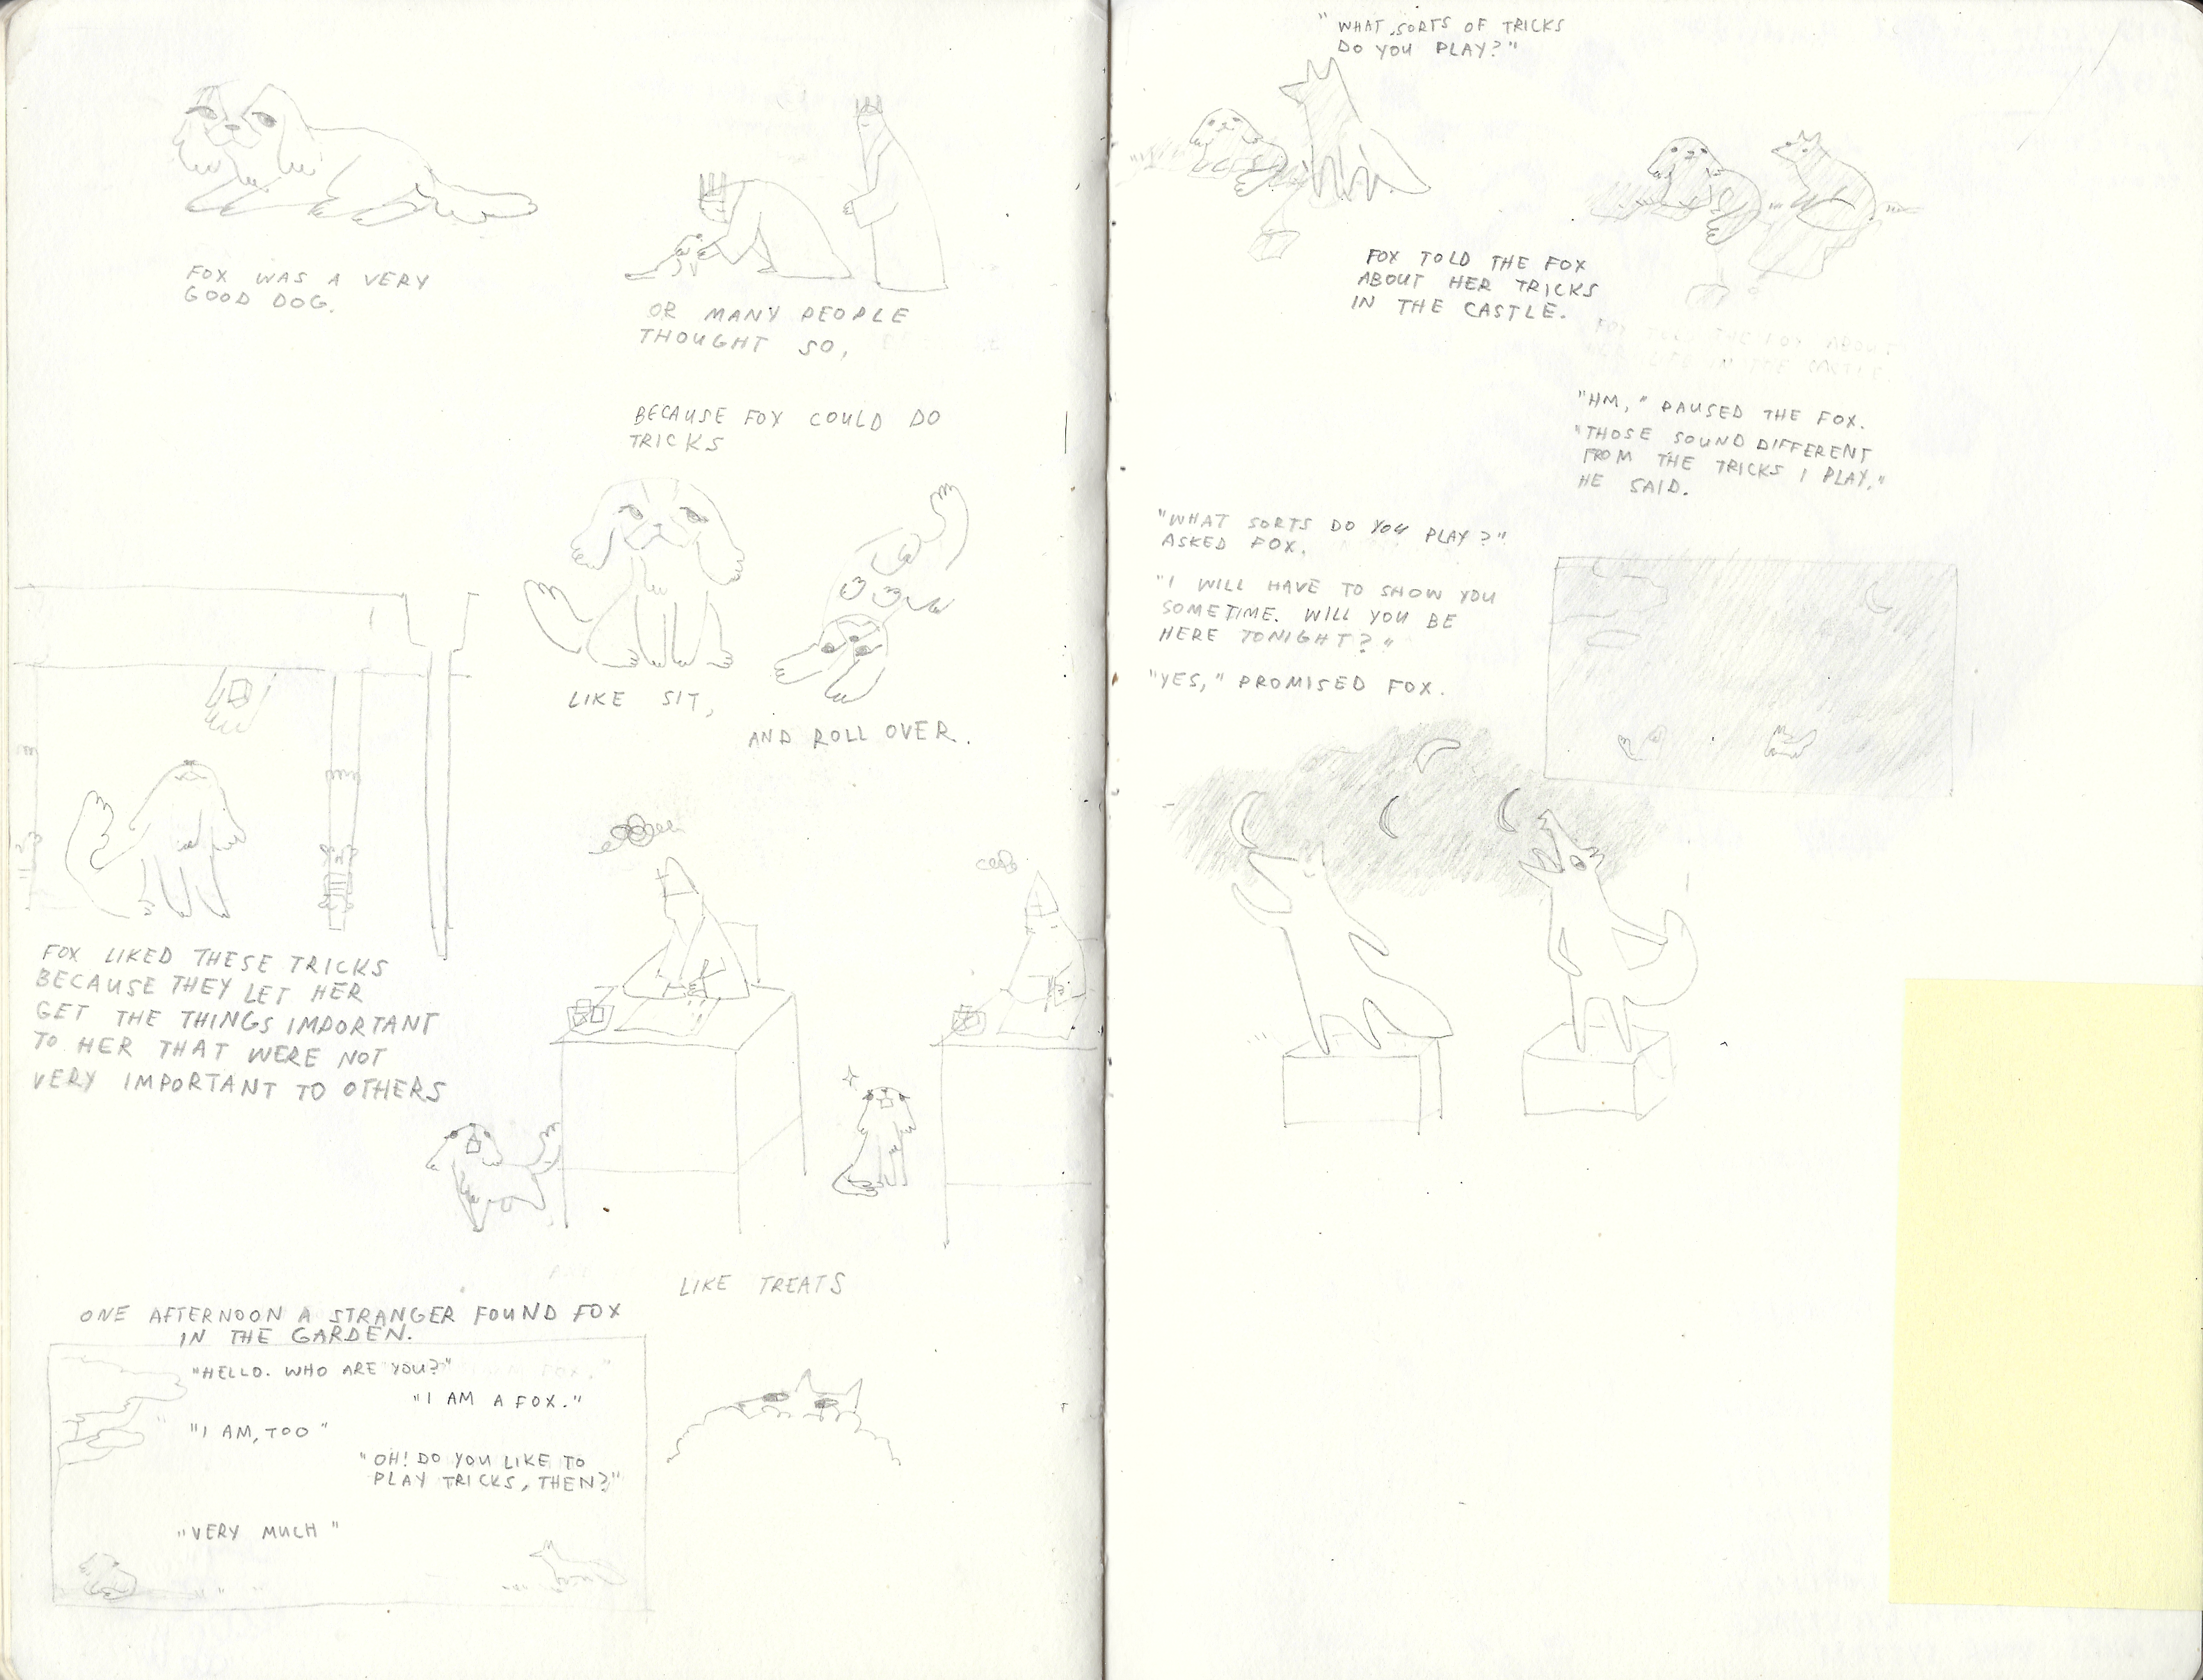 FOX WAS A VERY
GOOD DOG.
OR MANY PEOPLE
THOUGHT SO,
BECAUSE FOX COULD DO
TRICKS
LIKE SIT,
AND ROLL OVER.
FOX LIKED THESE TRICKS
BECAUSE THEY LET HER
GET THE THINGS IMPORTANT
TO HER THAT WERE NOT
VERY IMPORTANT TO OTHERS
LIKE TREATS
ONE AFTERNOON A STRANGER FOUND FOX
IN THE GARDEN.
"HELLO. WHO ARE YOU?"
"I AM A FOX."
"I AM, TOO"
"OH! DO YOU LIKE TO
PLAY TRICKS, THEN?"
"VERY MUCH"
"WHAT SORTS OF TRICKS
DO YOU PLAY?"
FOX TOLD THE FOX
ABOUT HER TRICKS
IN THE CASTLE.
FOX TOLD THE FOX ABOUT
HER LIFE IN THE CASTLE.
"HM," PAUSED THE FOX.
"THOSE SOUND DIFFERENT
FROM THE TRICKS I PLAY,"
HE SAID.
"WHAT SORTS DO YOU PLAY?"
ASKED FOX.
"I WILL HAVE TO SHOW YOU
SOMETIME. WILL YOU BE
HERE TONIGHT?"
"YES," PROMISED FOX.